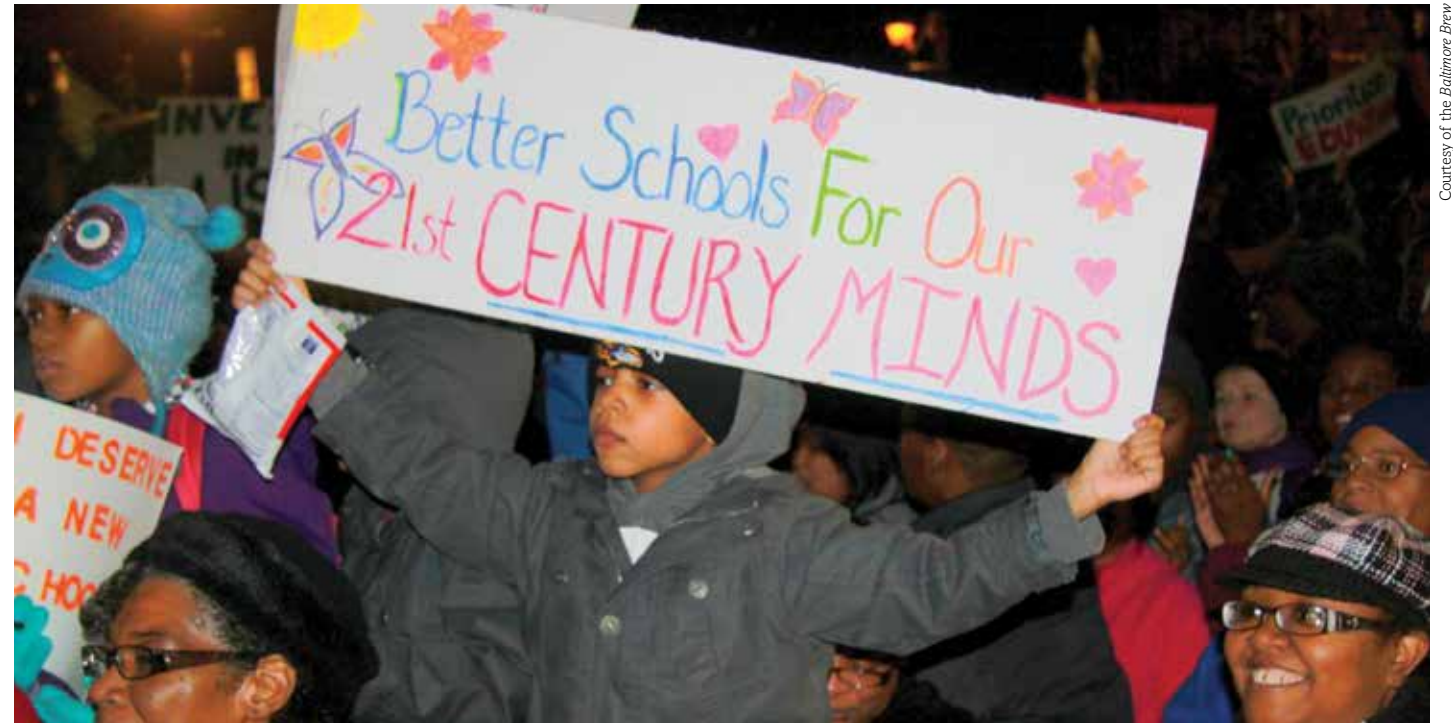 Better Schools For Our
21st CENTURY MINDS
IN
DESERVE
A NEW
Prioritize
Courtesy of the Baltimore Brew